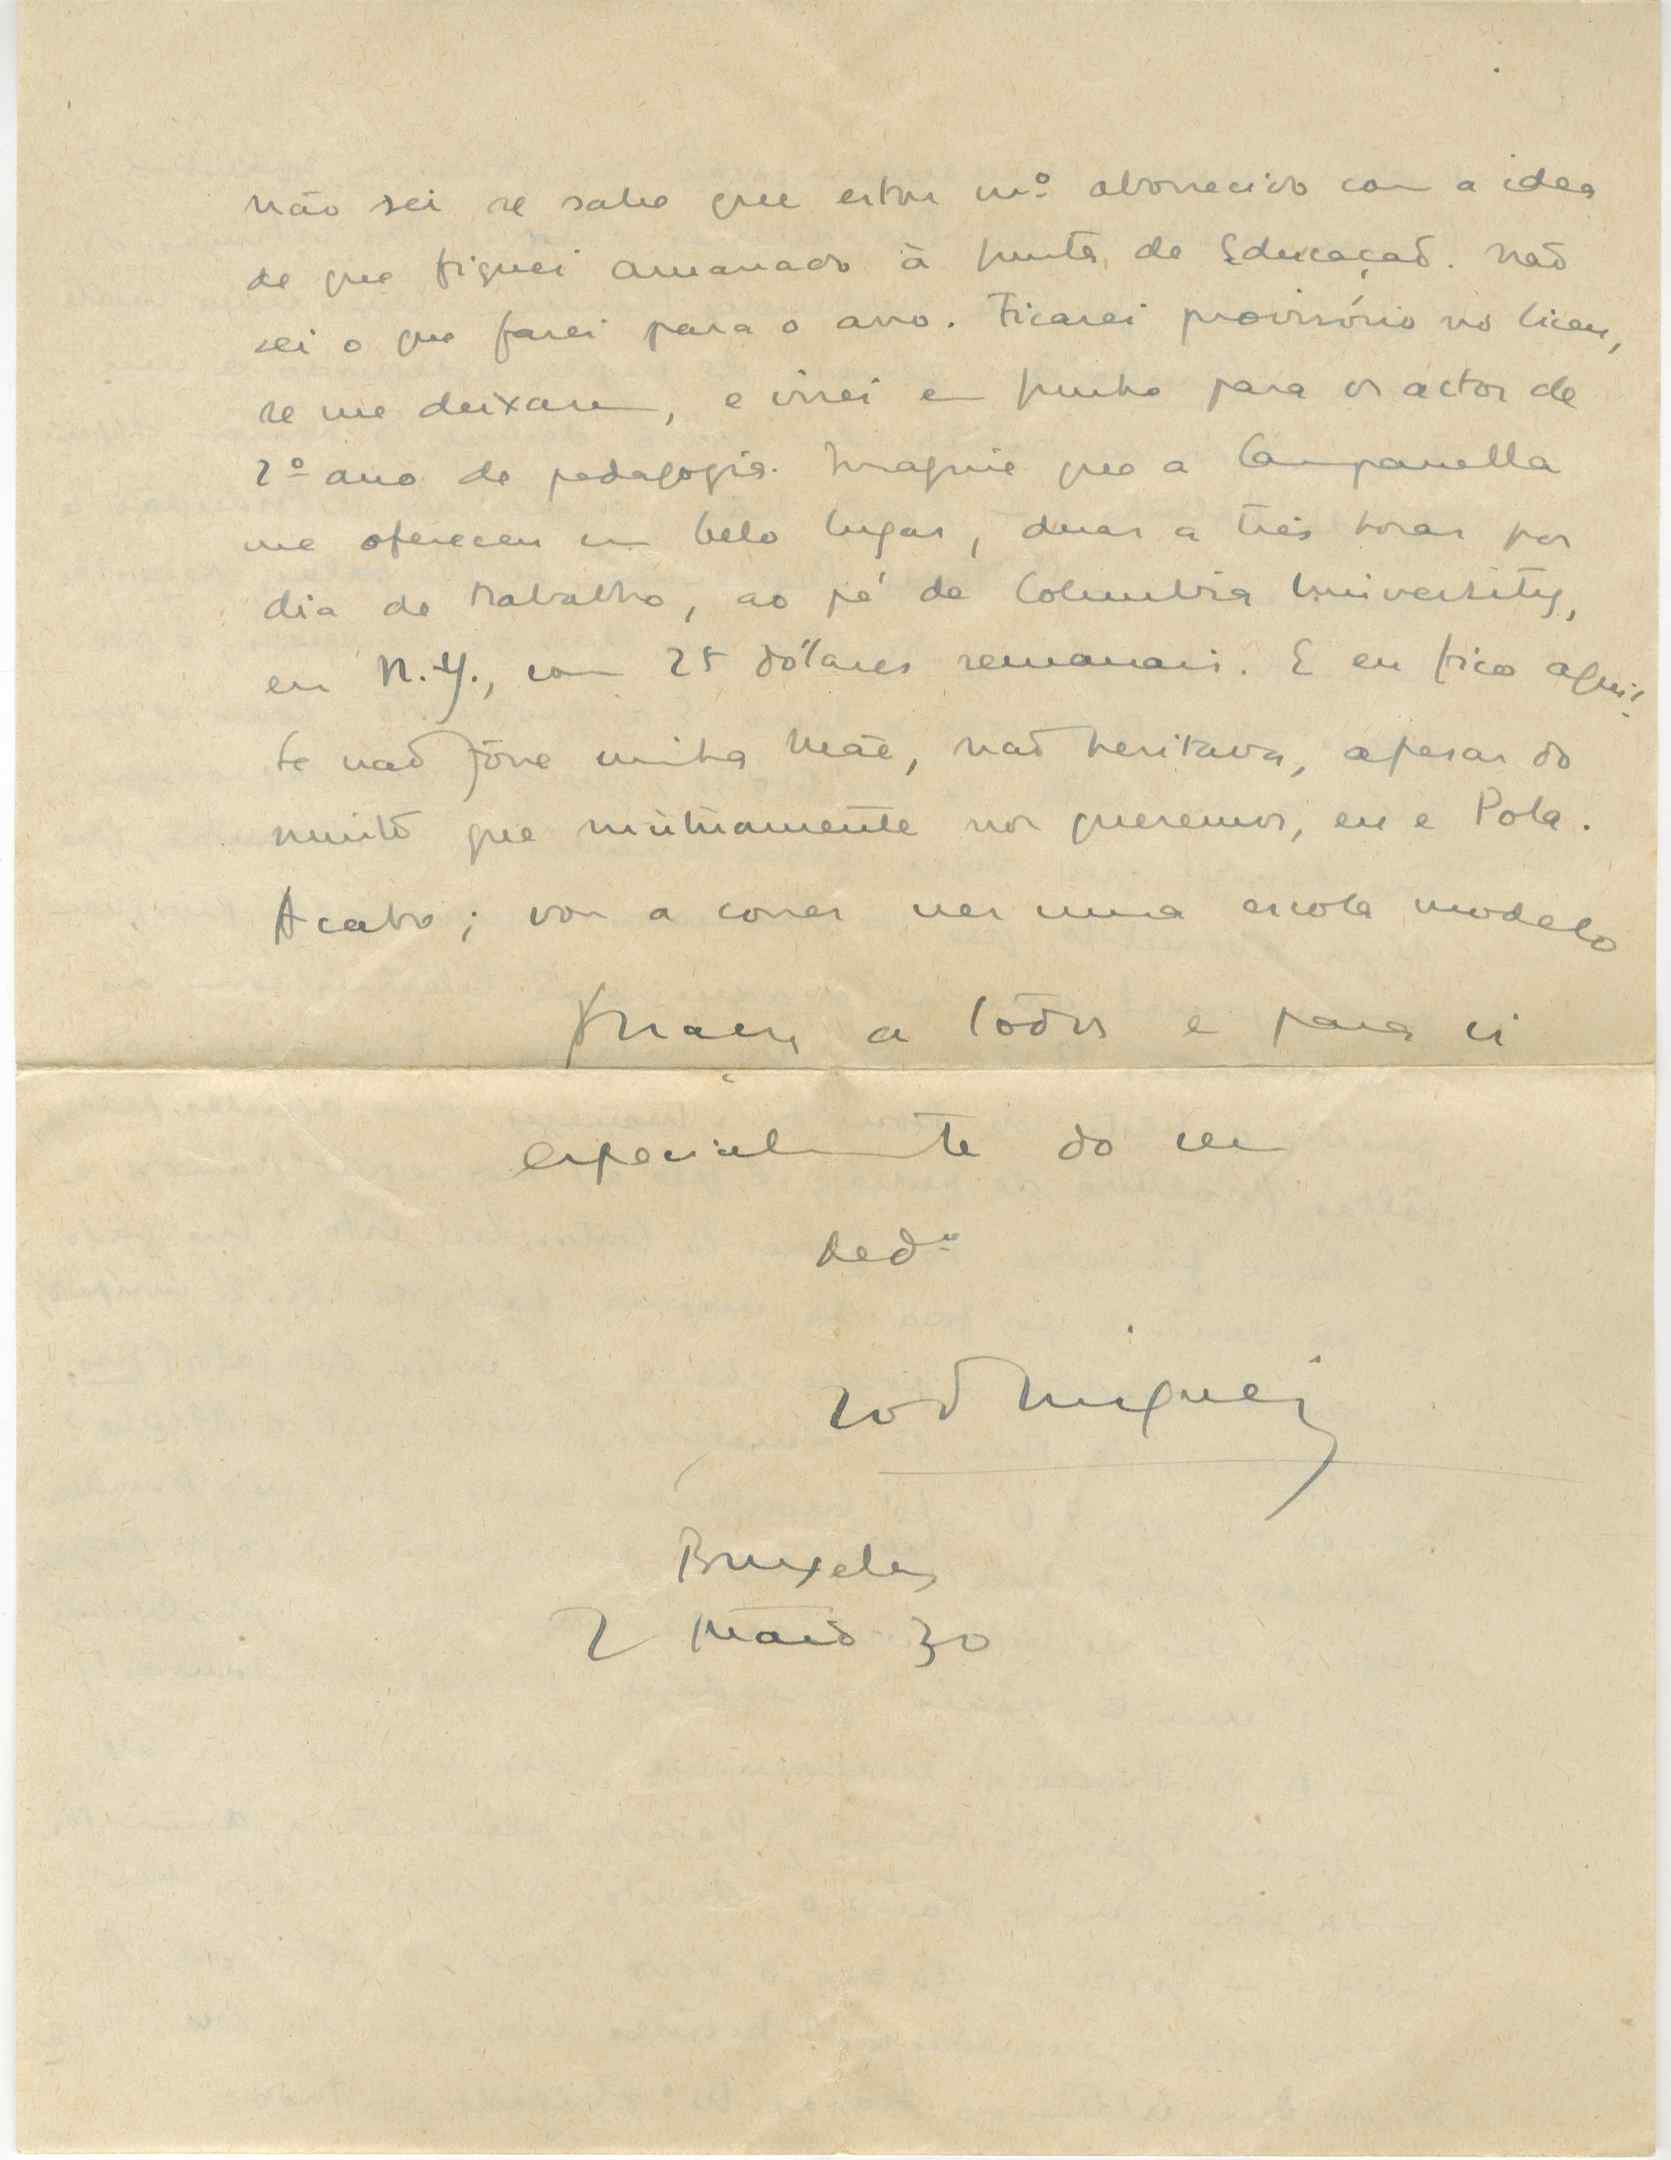 não sei se sabe que estou mº aborrecido com a idea
de que fiquei amarrado à Junta de Educação. Não
sei o que farei para o ano. Ficarei provisório no liceu,
se me deixarem, e virei em Junho para os actos de
2º ano de pedagogia. Imagine que a Campanella
me ofereceu um belo lugar, duas a três horas por
dia de trabalho, ao pé da Columbia University,
em N.Y., com 25 dólares semanais. E eu fico aqui!
Se não fôsse minha Mãe, não hesitava, apesar do
muito que mùtuamente nos queremos, eu e Pola.
Acabo; vou a correr ver uma escola modelo
a todos e para si
especialmente do seu
Dedº
Rod Miguéis
Bruxelas
2 Maio 30